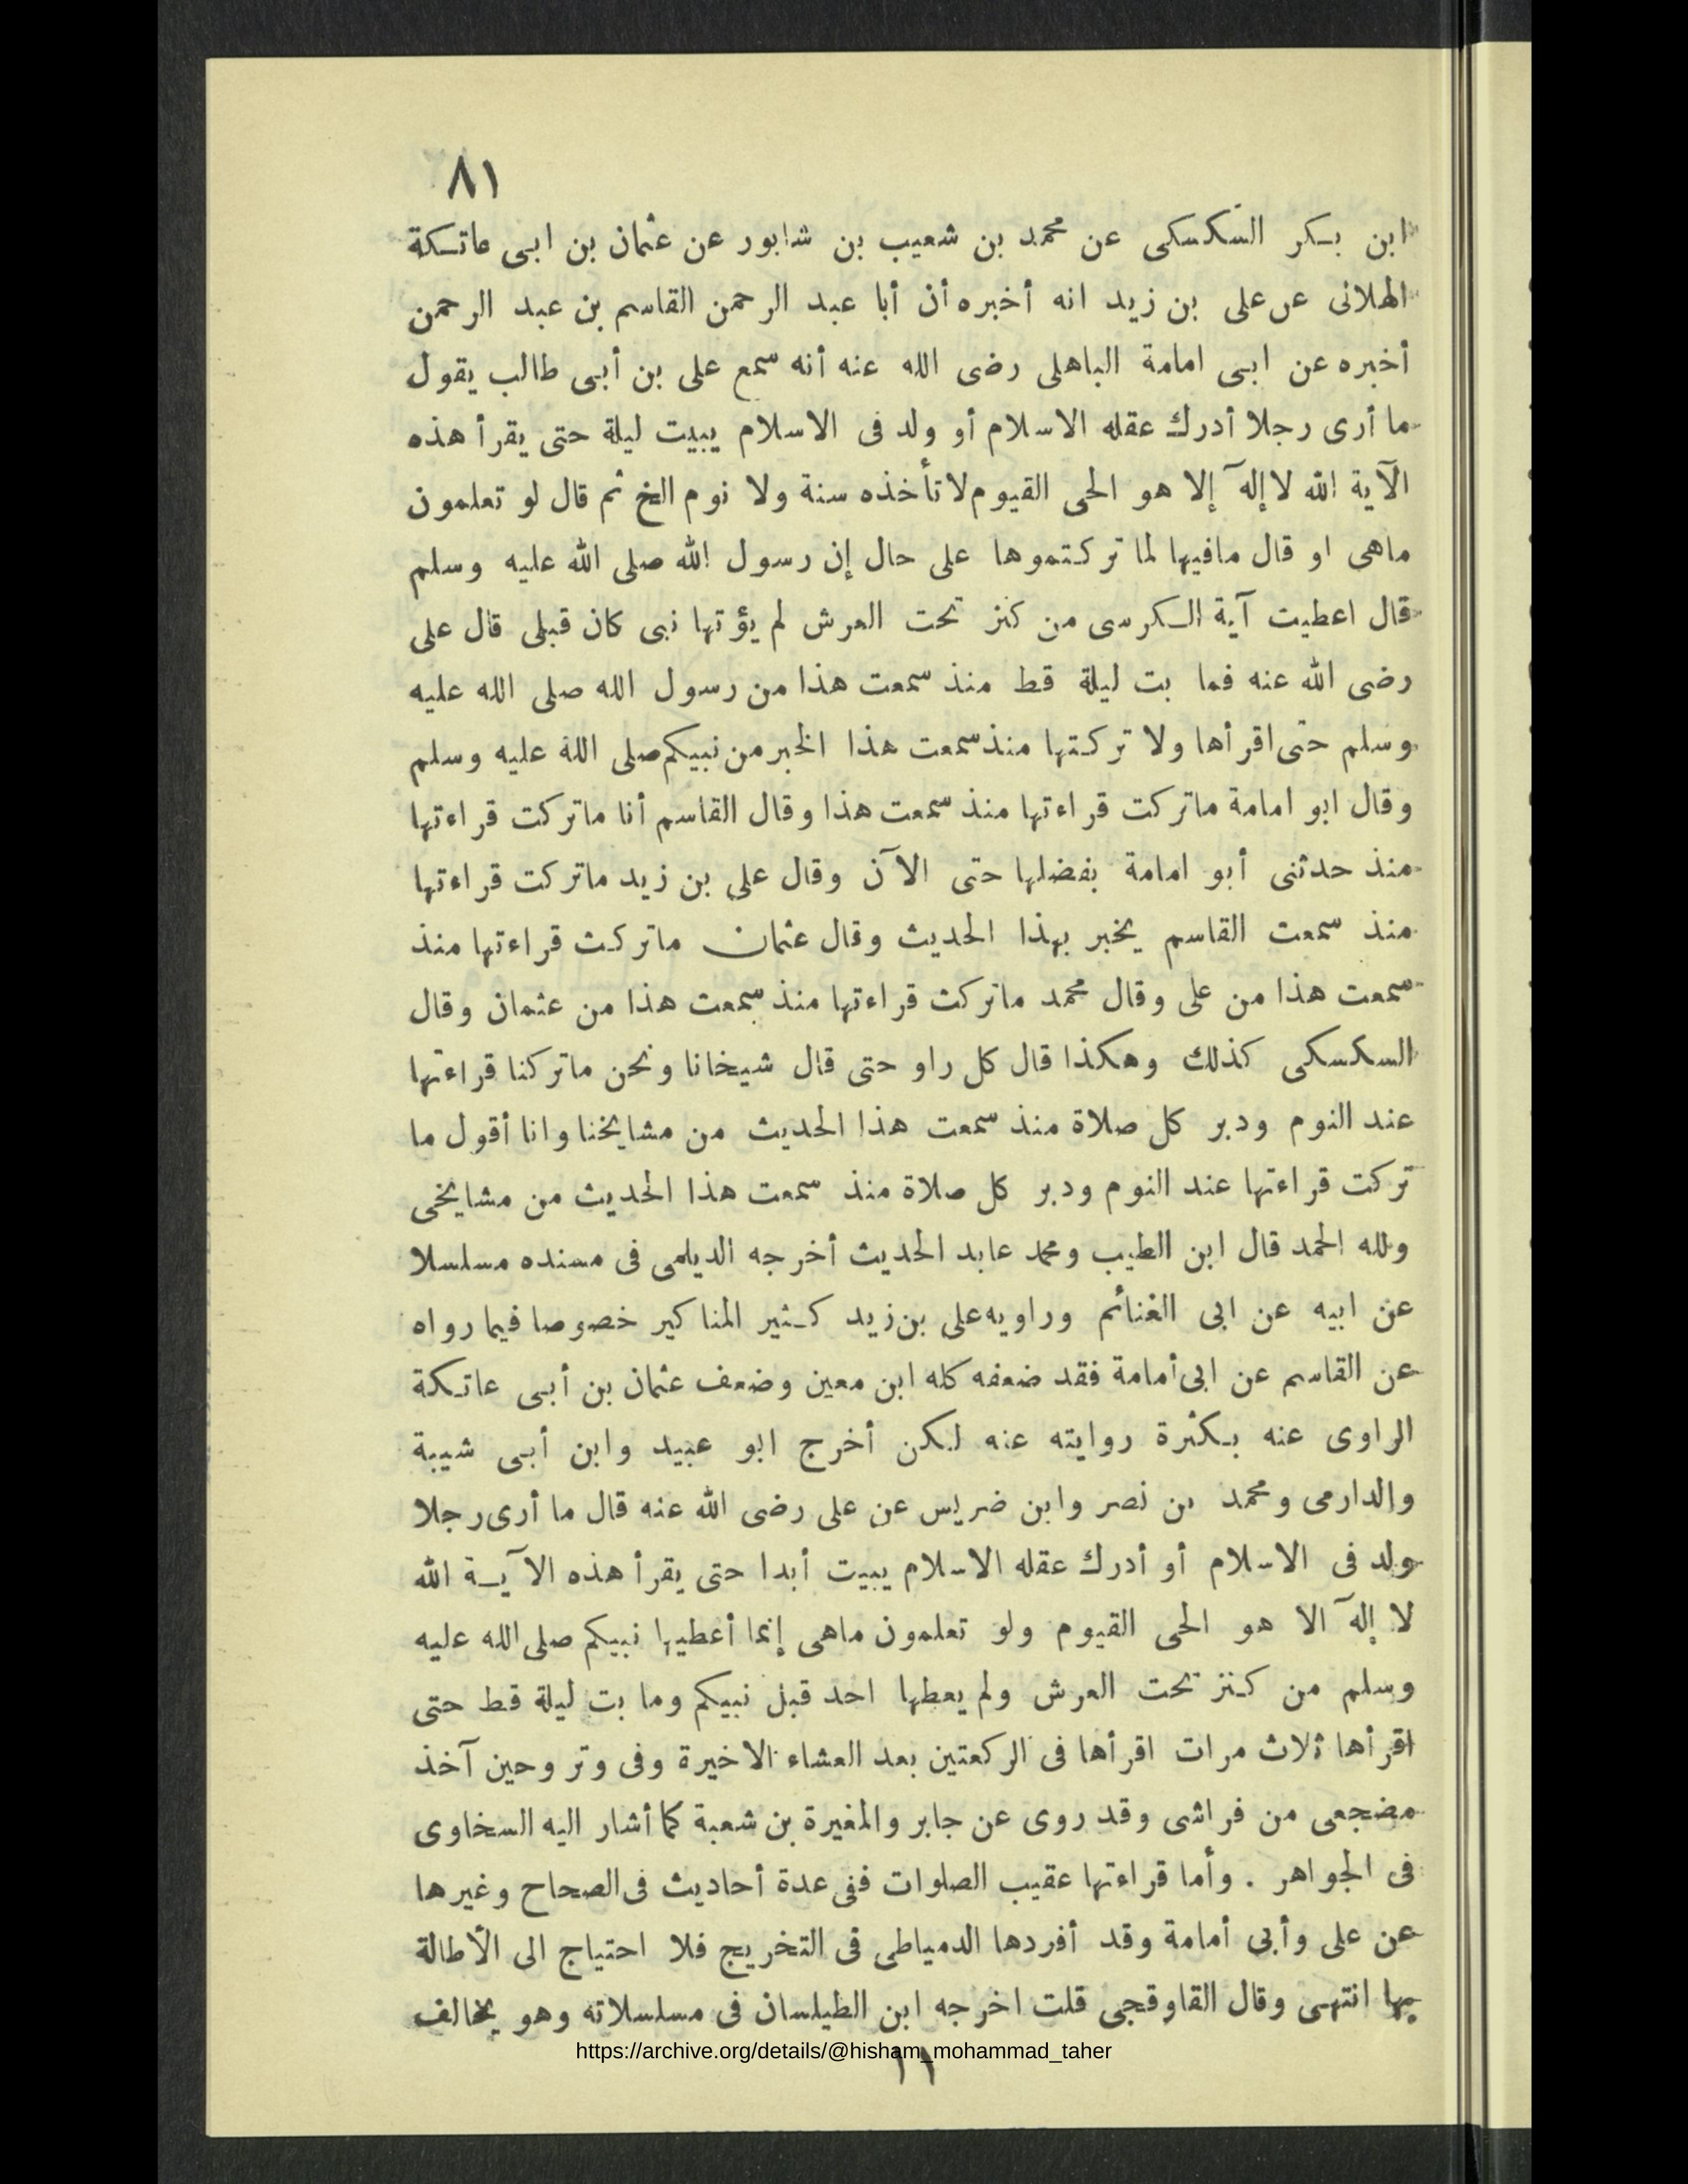 ٨١
ابن بكر السكسكى عن محمد بن شعيب بن شابور عن عثمان بن ابى عاتكة
الهلانى عن على بن زيد انه أخبره أن أبا عبد الرحمن القاسم بن عبد الرحمن
أخبره عن ابى امامة الباهلى رضى الله عنه أنه سمع على بن أبى طالب يقول
ما أرى رجلا أدرك عقله الاسلام أو ولد فى الاسلام يبيت ليلة حتى يقرأ هذه
الآية الله لا إله إلا هو الحى القيوم لا تأخذه سنة ولا نوم الخ ثم قال لو تعلمون
ماهى او قال مافيها لما تركتموها على حال إن رسول الله صلى الله عليه وسلم
قال اعطيت آية الكرسى من كنز تحت العرش لم يؤتها نبى كان قبلى قال على
رضى الله عنه فما بت ليلة قط منذ سمعت هذا من رسول الله صلى الله عليه
وسلم حتى اقرأها ولا تركتها منذ سمعت هذا الخبر من نبيكم صلى الله عليه وسلم
وقال ابو امامة ماتركت قراءتها منذ سمعت هذا وقال القاسم أنا ماتركت قراءتها
منذ حدثنى أبو امامة بفضلها حتى الآن وقال على بن زيد ماتركت قراءتها
منذ سمعت القاسم يخبر بهذا الحديث وقال عثمان ماتركت قراءتها منذ
سمعت هذا من على وقال محمد ماتركت قراءتها منذ سمعت هذا من عثمان وقال
السكسكى كذلك وهكذا قال كل راو حتى قال شيخانا ونحن ماتركنا قراءتها
عند النوم ودبر كل صلاة منذ سمعت هذا الحديث من مشايخنا وانا أقول ما
تركت قراءتها عند النوم ودبر كل صلاة منذ سمعت هذا الحديث من مشايخى
ولله الحمد قال ابن الطيب ومحمد عابد الحديث أخرجه الديلمى فى مسنده مسلسلا
عن ابيه عن ابى الغنائم وراويه على بن زيد كثير المناكير خصوصا فيما رواه
عن القاسم عن ابى أمامة فقد ضعفه كله ابن معين وضعف عثمان بن أبى عاتكة
الراوى عنه بكثرة روايته عنه لكن أخرج ابو عبيد وابن أبى شيبة
والدارمى ومحمد بن نصر وابن ضريس عن على رضى الله عنه قال ما أرى رجلا
ولد فى الاسلام أو أدرك عقله الاسلام يبيت أبدا حتى يقرأ هذه الآية الله
لا إله الا هو الحى القيوم ولو تعلمون ماهى إنما أعطيها نبيكم صلى الله عليه
وسلم من كنز تحت العرش ولم يعطها احد قبل نبيكم وما بت ليلة قط حتى
اقرأها ثلاث مرات اقرأها فى الركعتين بعد العشاء الاخيرة وفى وتر وحين آخذ
مضجعى من فراشى وقد روى عن جابر والمغيرة بن شعبة كما أشار اليه السخاوى
فى الجواهر . وأما قراءتها عقيب الصلوات ففى عدة أحاديث فى الصحاح وغيرها
عن على وأبى أمامة وقد أفردها الدمياطى فى التخريج فلا احتياج الى الأطالة
بها انتهى وقال القاوقجى قلت اخرجه ابن الطيلسان فى مسلسلاته وهو يخالف
https://archive.org/details/@hisham_mohammad_taher
١١